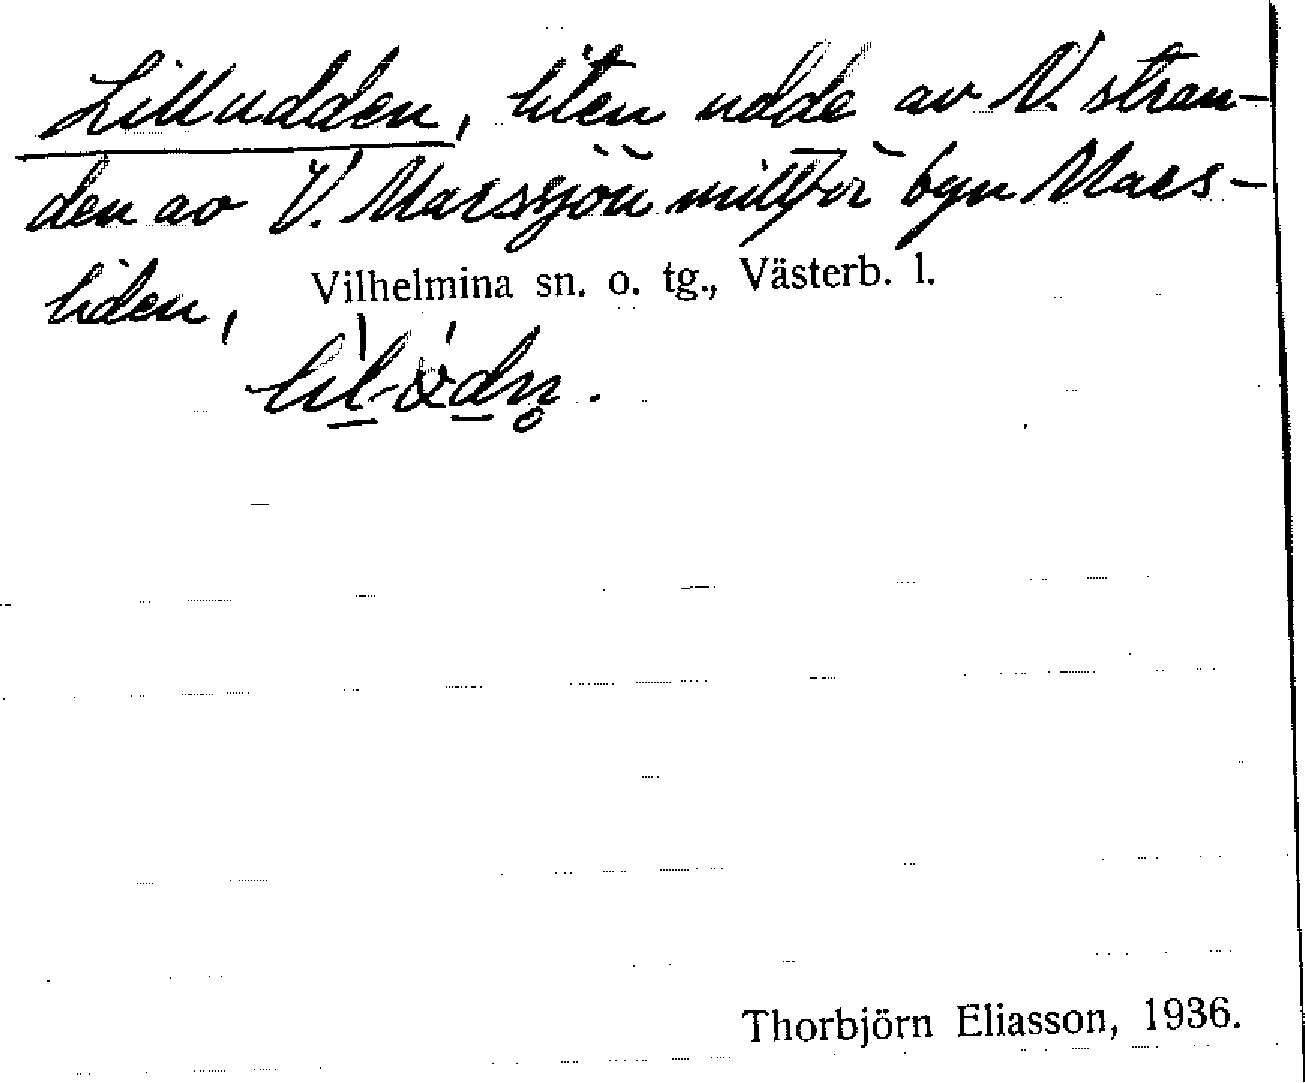 Lilludden, liten udde av N. stran-
den av V. Marssjön mittför byn Mars-
liden,
Vilhelmina sn. o. tg., Västerb. l.
Thorbjörn Eliasson, 1936.